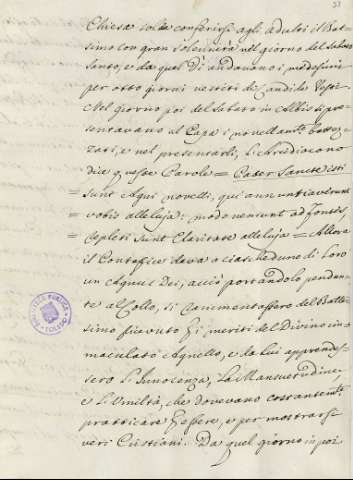 Chiesa solea conferirsi agli adulti il Bat-
tesimo con gran solennità nel giorno del Sabato
Santo, e da quel Dì andavano i medesimi
per otto giorni vestiti di Candide Vesti
Nel giorno poi del Sabato in Albis si pre-
sentavano al Papa i novellamte battez-
zati, e nel presentarli, l'Arcidiacono
dice queste Parole = Pater Sancte isti
= sunt Agni novelli, qui annuntiaverunt
= vobis alleluja: modo veniunt ad fontes,
= repleti sunt Claritate alleluja = Allora
il Pontefice dava a ciascheduno di loro
un Agnus Dei, acciò portandolo penden-
te al Collo, si rammentassero del Batte-
simo ricevuto per i meriti del Divino im-
maculato Agnello, e da lui apprendes-
sero l'Innocenza, la Mansuetudine,
e l'Umiltà, che dovevano costantemte
pratticare per essere, e per mostrarsi
veri Cristiani. Da quel giorno in poi
BIBLIOTECA PUBLICA
TOLEDO